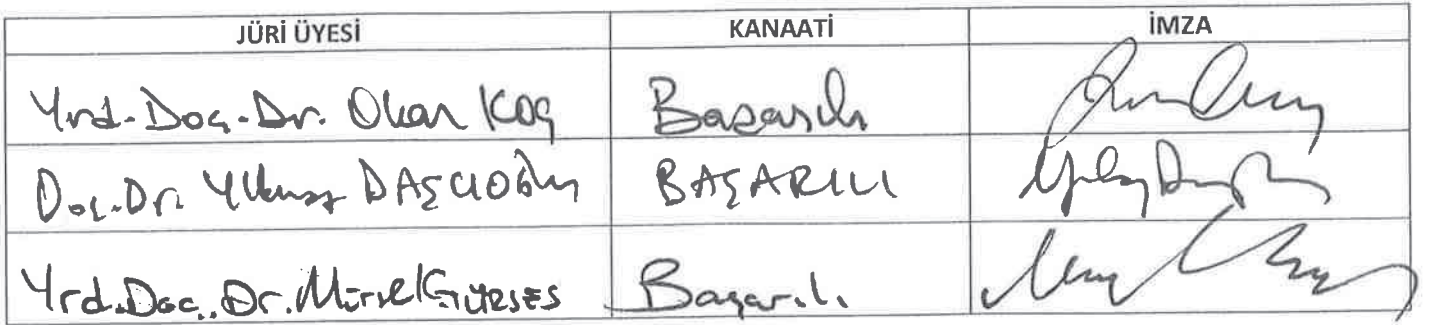 JÜRİ ÜYESİ KANAATİ İMZA
Yrd. Doç. Dr. Okan Koç Başarılı
Doç. Dr. Yılmaz DAŞCIOĞLU BAŞARILI
Yrd. Doç. Dr. Mürsel GÜRSES Başarılı